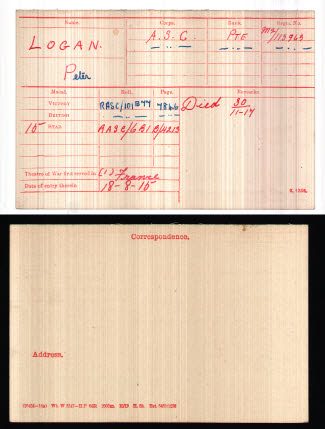 Name. Corps. Rank. Regtl. No.
LOGAN. A.S.C. PTE M2/113963
Peter
Medal. Roll. Page. Remarks.
VICTORY RASC/101B77 7866 Died 30/11-17
BRITISH — .. — — .. —
15 STAR AASC/6B1B/4213
Theatre of War first served in (1) France
Date of entry therein 18-8-15
K. 1380.
Correspondence.
Address.